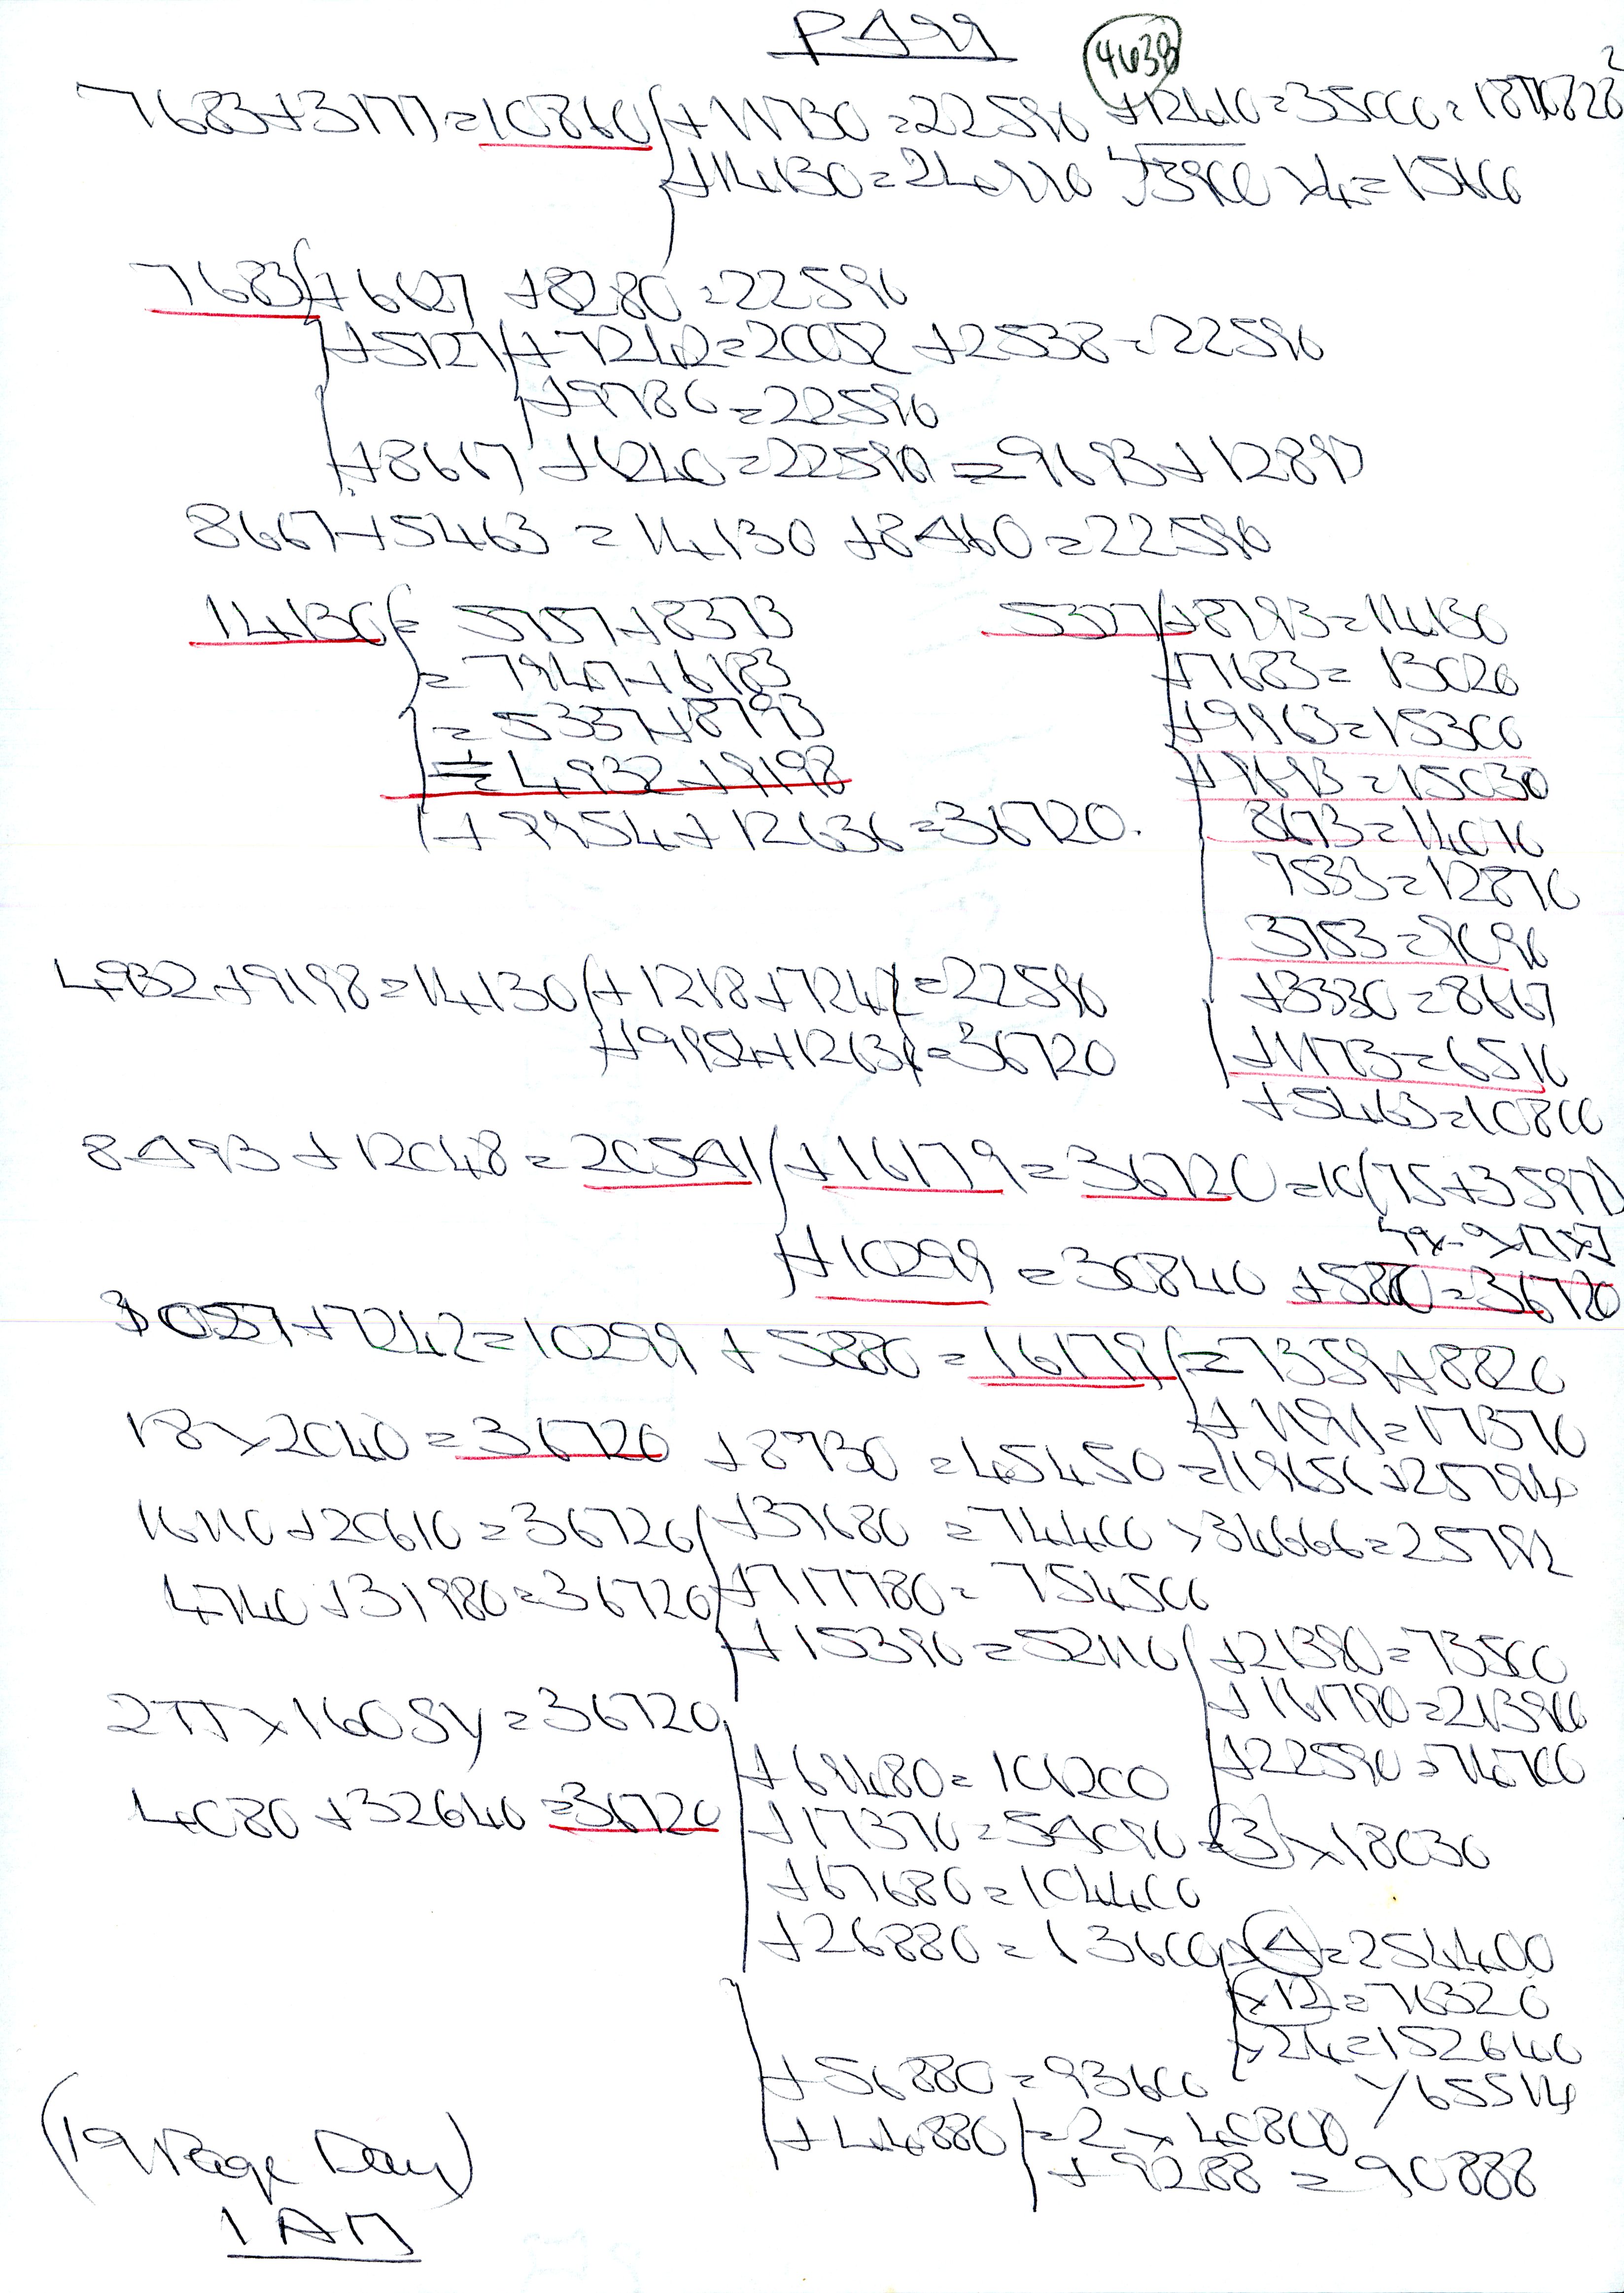 PA99
4638
7683+3177=10860 +11730=22590 +12410=35000=187.0828²
+14130=24990 √3900 ×4=15600
7683 +6627 +8280=22590
+5127 +7242=20052 +2538=22590
+9780=22590
+8667 +6240=22590=9693+12897
8667+5463=14130 +8460=22590
14130 = 5757+8373
= 7947+6183
= 5337+8793
= 4932+9198
+9954+12636=36720.
5337 +8793=14130
+7683=13020
+9963=15300
+9693=15030
8673=14010
7533=12870
3753=9090
+3330=8667
+1173=6510
+5463=10800
4932+9198=14130 +1218+7242=22590
+9954+12636=36720
8493+12048=20541 +16179=36720=10(75+3597)
+10299=30840 +5880=36720
3057+7242=10299+5880=16179=7359+8820
+1191=17370
18×2040=36720+8730=45450=19656+25794
16110+20610=36720 +37680=74400 ×34666=25792
4740+31980=36720 +717780=754500
+15390=52110 +21390=73500
+161790=213900
+22590=74700
2π×
=36720
4080+32640=36720 +69480=106200
+17370=54090=3×18030
+67680=104400
+26880=63600 ×4=254400
×12=76320
×24=152640
+56880=93600
+44880=2×40800
+9288=90888
(19 Page Day)
1 AM